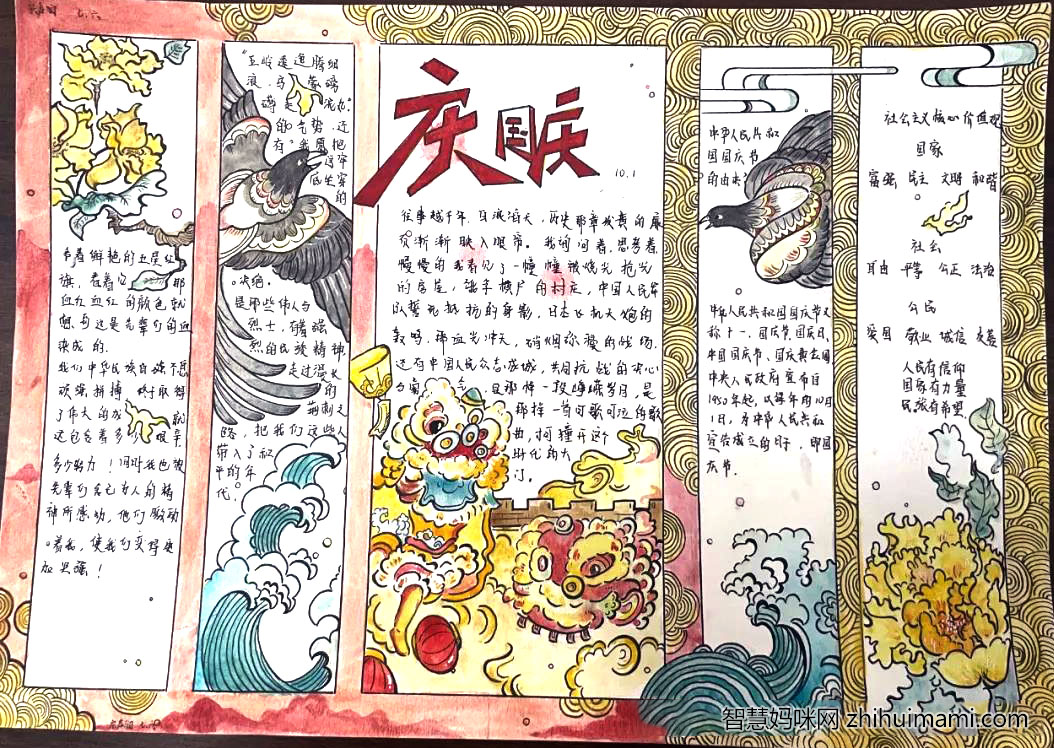 庆国庆
10.1
看着鲜艳的五星红
旗，看着
血红血红的颜色就
想到这是先辈们的血
染成的.
我们中华民族自强不息
顽强拼搏，终于取得
了伟大的成 就
这包含着多少 艰辛
多少努力！同时我也被
先辈们舍己为人的精
神所感动，他们激动
着我，使我们变得更
加坚强！
“五岭逶迤腾细
浪，乌蒙磅
礴走 泥丸”
的气势，还
有“我愿把
牢
底坐穿
的
”决绝。
是那些伟人与
烈士，有着强
烈的民族精神
走过漫长
的
荆棘之
路，把我们这些人
带入了和
平的年
代。
往事越千年，
历史那章
众渐渐映入眼帘。我询问着，思考着
慢慢的我看见了一幢幢被烧光抢光
的房屋，
村庄，中国人民军
队誓死抵抗的身影，日本飞机大炮的
轰鸣，
硝烟弥漫的战场.
还有中国人民众志成城，共同抗战的决心
与勇气 那样一段峥嵘岁月，是
那样一首可歌可泣的歌
曲，
时代的大
门。
中华人民共和
国国庆节
的由来？
中华人民共和国国庆节又
称十一、国庆节、国庆日、
中国国庆节、国庆黄金周
中央人民政府宣布自
1950年起，以每年的10月
1日，为中华人民共和
宣告成立的日子，即国
庆节.
社会主义核心价值观
国家
富强 民主 文明 和谐
社会
自由 平等 公正 法治
公民
爱国 敬业 诚信 友善
人民有信仰
国家有力量
民族有希望
智慧妈咪网 zhihuimami.com